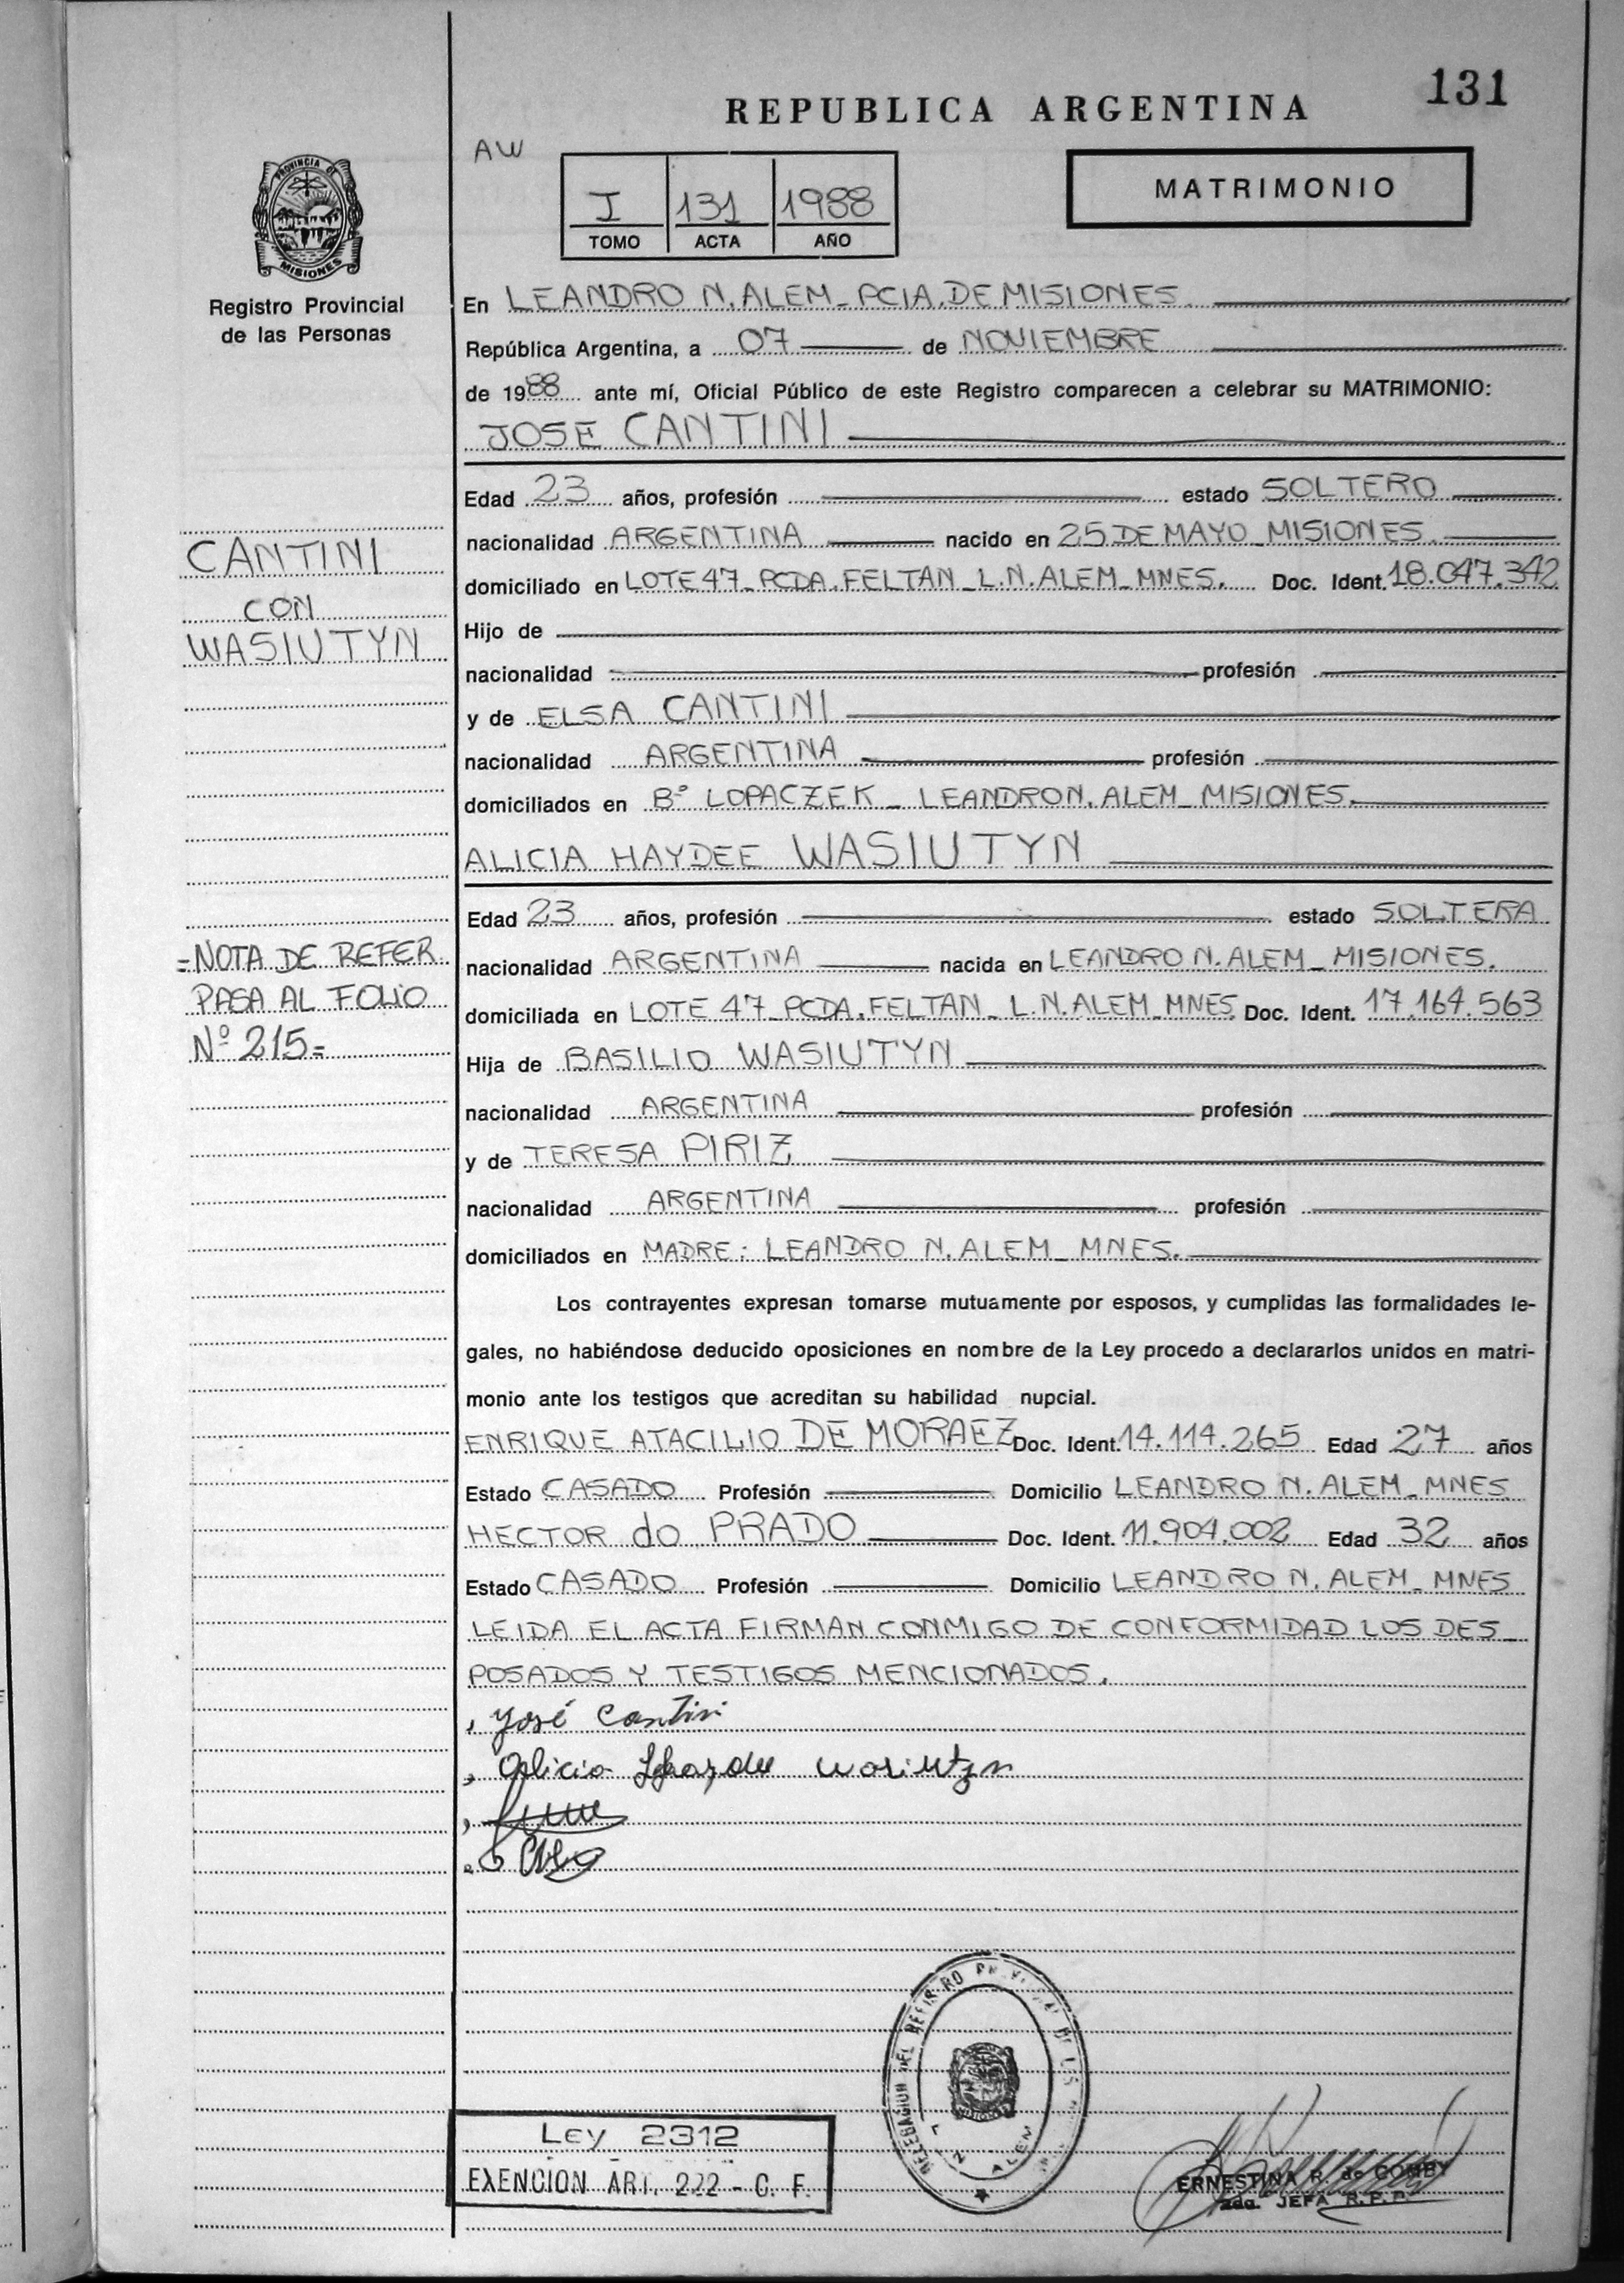 131
REPUBLICA ARGENTINA
AW
I 131 1988
TOMO ACTA AÑO
MATRIMONIO
PROVINCIA DE
MISIONES
Registro Provincial
de las Personas
En LEANDRO N. ALEM_PCIA. DE MISIONES.
República Argentina, a 07 de NOVIEMBRE
de 1988 ante mí, Oficial Público de este Registro comparecen a celebrar su MATRIMONIO:
JOSE CANTINI
Edad 23 años, profesión estado SOLTERO
nacionalidad ARGENTINA nacido en 25 DE MAYO_MISIONES.
domiciliado en LOTE 47_PCDA. FELTAN_L.N. ALEM_MNES. Doc. Ident. 18.047.342
Hijo de
nacionalidad profesión
y de ELSA CANTINI
nacionalidad ARGENTINA profesión
domiciliados en Bº LOPACZEK_LEANDRO N. ALEM_MISIONES.
CANTINI
CON
WASIUTYN
ALICIA HAYDEE WASIUTYN
Edad 23 años, profesión estado SOLTERA
nacionalidad ARGENTINA nacida en LEANDRO N. ALEM_MISIONES.
domiciliada en LOTE 47_PCDA. FELTAN_L.N. ALEM_MNES. Doc. Ident. 17.164.563
Hija de BASILIO WASIUTYN
nacionalidad ARGENTINA profesión
y de TERESA PIRIZ
nacionalidad ARGENTINA profesión
domiciliados en MADRE: LEANDRO N. ALEM_MNES.
=NOTA DE REFER
PASA AL FOLIO
Nº 215=
Los contrayentes expresan tomarse mutuamente por esposos, y cumplidas las formalidades le-
gales, no habiéndose deducido oposiciones en nombre de la Ley procedo a declararlos unidos en matri-
monio ante los testigos que acreditan su habilidad nupcial.
ENRIQUE ATACILIO DE MORAEZ Doc. Ident. 14.114.265 Edad 27 años
Estado CASADO Profesión Domicilio LEANDRO N. ALEM_MNES
HECTOR do PRADO Doc. Ident. 11.904.002 Edad 32 años
Estado CASADO Profesión Domicilio LEANDRO N. ALEM_MNES
LEIDA EL ACTA FIRMAN CONMIGO DE CONFORMIDAD LOS DES_
POSADOS Y TESTIGOS MENCIONADOS.
José Cantini
Alicia Haydee Wasiutyn
DELEGACION DEL REGISTRO
L. N. ALEM
MISIONES
Ley 2312
EXENCION ART. 222 - C. F.
ERNESTINA R. de GOMBY
JEFA R.P.P.